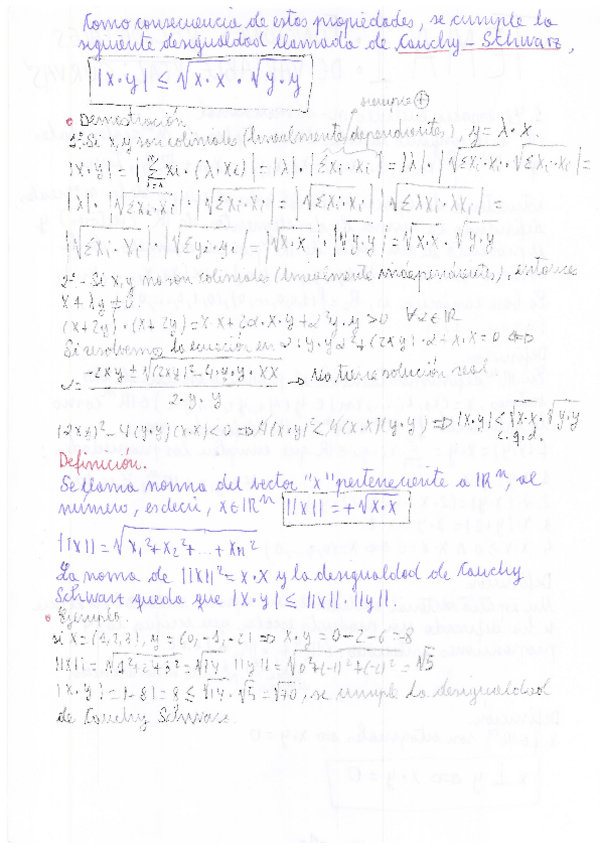 Como consecuencia de estas propiedades, se cumple la
siguiente desigualdad llamada de Cauchy-Schwarz,
|x·y| ≤ √x·x · √y·y
siempre ⊕
• Demostración
1º- Si x, y son colineales (linealmente dependientes), y = λ·x.
|x·y| = |Σ xi·(λ·xi)| = |λ|·|Σ xi·xi| = |λ|·|√Σxi·xi·√Σxi·xi| =
|λ|·|√Σxi·xi|·|√Σxi·xi| = |√Σxi·xi|·|√Σλxi·λxi| =
|√Σxi·xi|·|√Σyi·yi| = |√x·x|·|√y·y| = √x·x·√y·y
2º- Si x, y no son colineales (linealmente independientes), entonces
x+λy ≠ 0.
(x+αy)·(x+αy) = x·x+2α·x·y+α²y·y > 0 ∀α∈ℝ
Si resolvemos la ecuación en α: y·yα²+(2xy)·α+x·x = 0 ⇔
α = (-2xy ± √(2xy)²-4·y·y·xx) / (2·y·y) → No tiene solución real
(2xy)²-4(y·y)(x·x)<0 ⇒ 4(x·y)²<4(x·x)(y·y) ⇒ |x·y|<√x·x·√y·y
c.q.d.
Definición.
Se llama norma del vector "x" perteneciente a ℝⁿ, al
número, es decir, x∈ℝⁿ ||x|| = +√x·x
||x|| = √x₁²+x₂²+...+xn²
La norma de ||x||² = x·x y la desigualdad de Cauchy
Schwarz queda que |x·y| ≤ ||x||·||y||.
• Ejemplo:
si x = (1,2,3), y = (0,-1,-2) ⇒ x·y = 0-2-6 = -8
||x|| = √1²+2²+3² = √14, ||y|| = √0²+(-1)²+(-2)² = √5
|x·y| = |-8| = 8 ≤ √14·√5 = √70, se cumple la desigualdad
de Cauchy Schwarz.